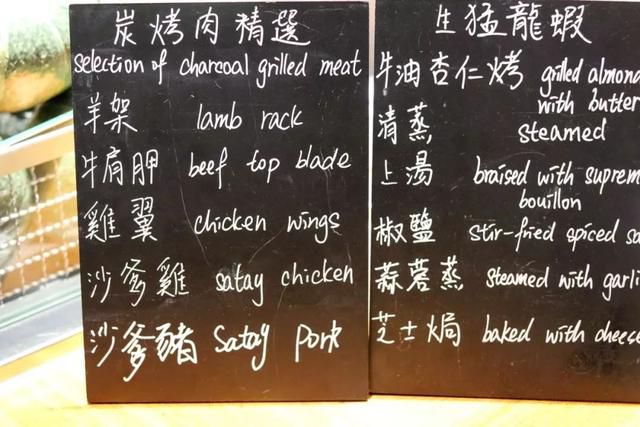 炭烤肉精選
selection of charcoal grilled meat
羊架 lamb rack
牛肩胛 beef top blade
雞翼 chicken wings
沙爹雞 satay chicken
沙爹豬 satay pork
生猛龍蝦
牛油杏仁烤 grilled almond
with butter
清蒸 steamed
上湯 braised with suprem
bouillon
椒鹽 stir-fried spiced sa
蒜蓉蒸 steamed with garli
芝士焗 baked with cheese